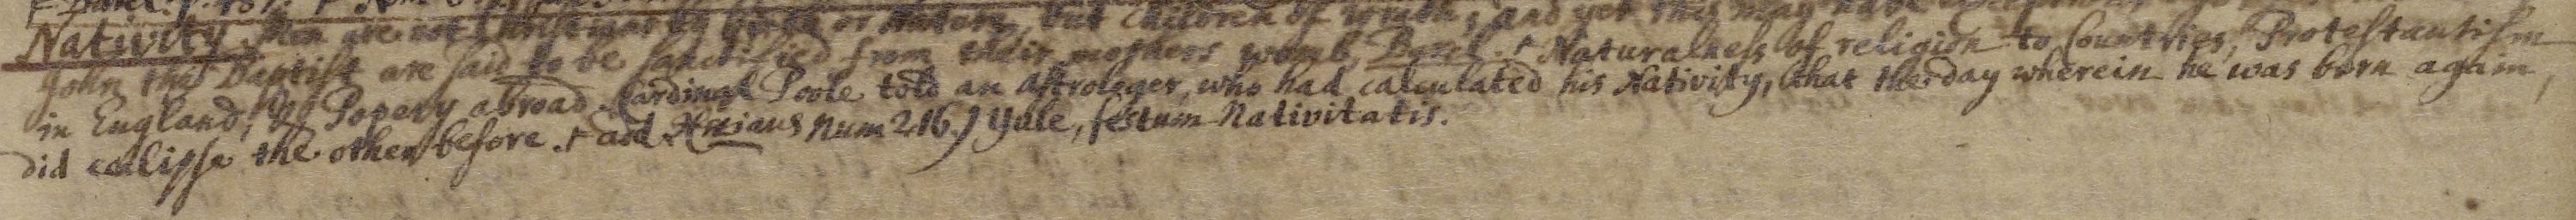 Nativity. Men are not Christians by birth or nature, but children of wrath, and yet this may
John the Baptist are said to be sanctified from their mothers womb, + Naturalness of religion to Countries, Protestantism
in England, & Popery abroad. Cardinal Poole told an Astrologer, who had calculated his Nativity, that the day wherein he was born again,
did ecclipse the other before. + add Num 216.) Yule, festum Nativitatis.